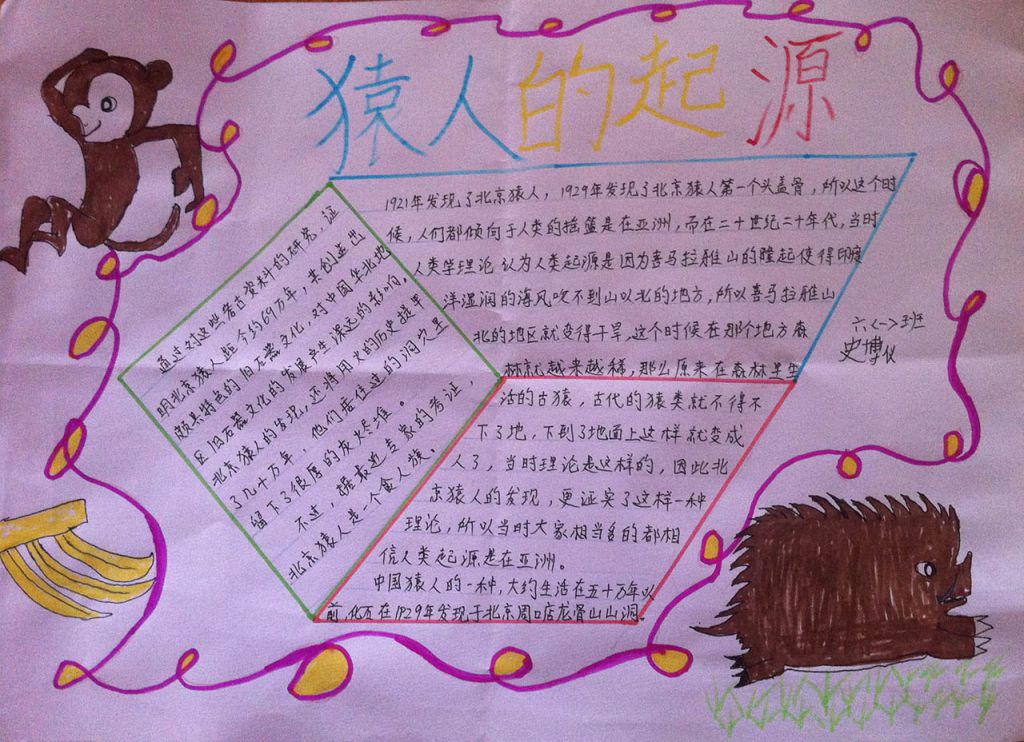 猿人的起源
1921年发现了北京猿人，1929年发现了北京猿人第一个头盖骨，所以这个时
候，人们都倾向于人类的摇篮是在亚洲，而在二十世纪二十年代，当时
人类学理论认为人类起源是因为喜马拉雅山的隆起使得印度
洋湿润的海风吹不到山以北的地方，所以喜马拉雅山
北的地区就变得干旱，这个时候在那个地方森
林就越来越稀，那么原来在森林里生
活的古猿，古代的猿类就不得不
下了地，下到了地面上这样就变成
人了，当时理论是这样的，因此北
京猿人的发现，更证实了这样一种
理论，所以当时大家相当多的都相
信人类起源是在亚洲。
中国猿人的一种，大约生活在五十万年以
前，化石在1929年发现于北京周口店龙骨山山洞。
通过对这些考古资料的研究，证
明北京猿人距今约69万年，其创造出
颇具特色的旧石器文化，对中国华北地
区旧石器文化的发展产生深远的影响。
北京猿人的发现，还将用火的历史提早
了几十万年，他们居住过的洞穴里
留下了很厚的灰烬堆。
不过，据最近专家的考证，
北京猿人是一个食人族。
六<一>班
史博仪